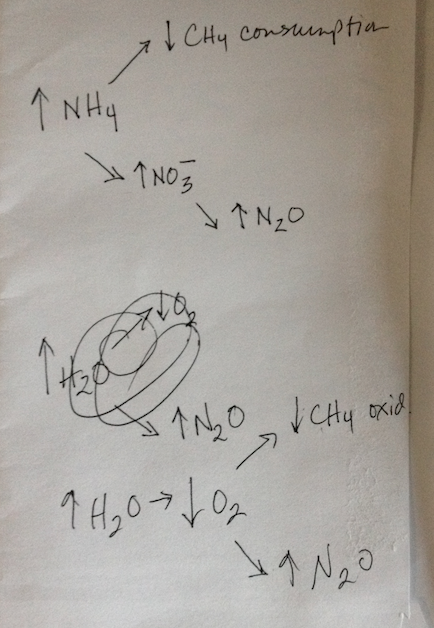 ↓ CH4 consumption
↑ NH4
↑ NO3⁻
↑ N2O
↓ O2
↑ H2O
↑ N2O
↓ CH4 oxid.
↑ H2O → ↓ O2
↑ N2O